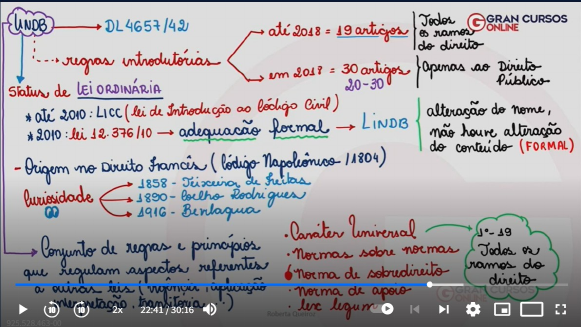 LINDB → DL 4657/42
GRAN CURSOS
ONLINE
→ regras introdutórias
→ até 2018 = 19 artigos
Todos
os ramos
do direito
→ em 2018 = 30 artigos
20-30
Apenas ao Direito
Público
Status de LEI ORDINÁRIA
* até 2010: LICC (lei de Introdução ao Código Civil)
* 2010: lei 12.376/10 → adequação formal → LINDB
alteração do nome,
não houve alteração
do conteúdo (FORMAL)
- Origem no Direito francês (Código Napoleônico / 1804)
Curiosidade
1858 - Teixeira de Freitas
1890 - Coelho Rodrigues
1916 - Bevilaqua
→ Conjunto de regras e princípios
que regulam aspectos referentes
a outras leis (vigência, aplicação
interpretação,
• Caráter Universal
• Normas sobre normas
• Norma de sobredireito
• norma de apoio
lex legum
1º - 19
Todos os
ramos do
direito
10
10
2x
22:41 / 30:16
GRAN CURSOS
ONLINE